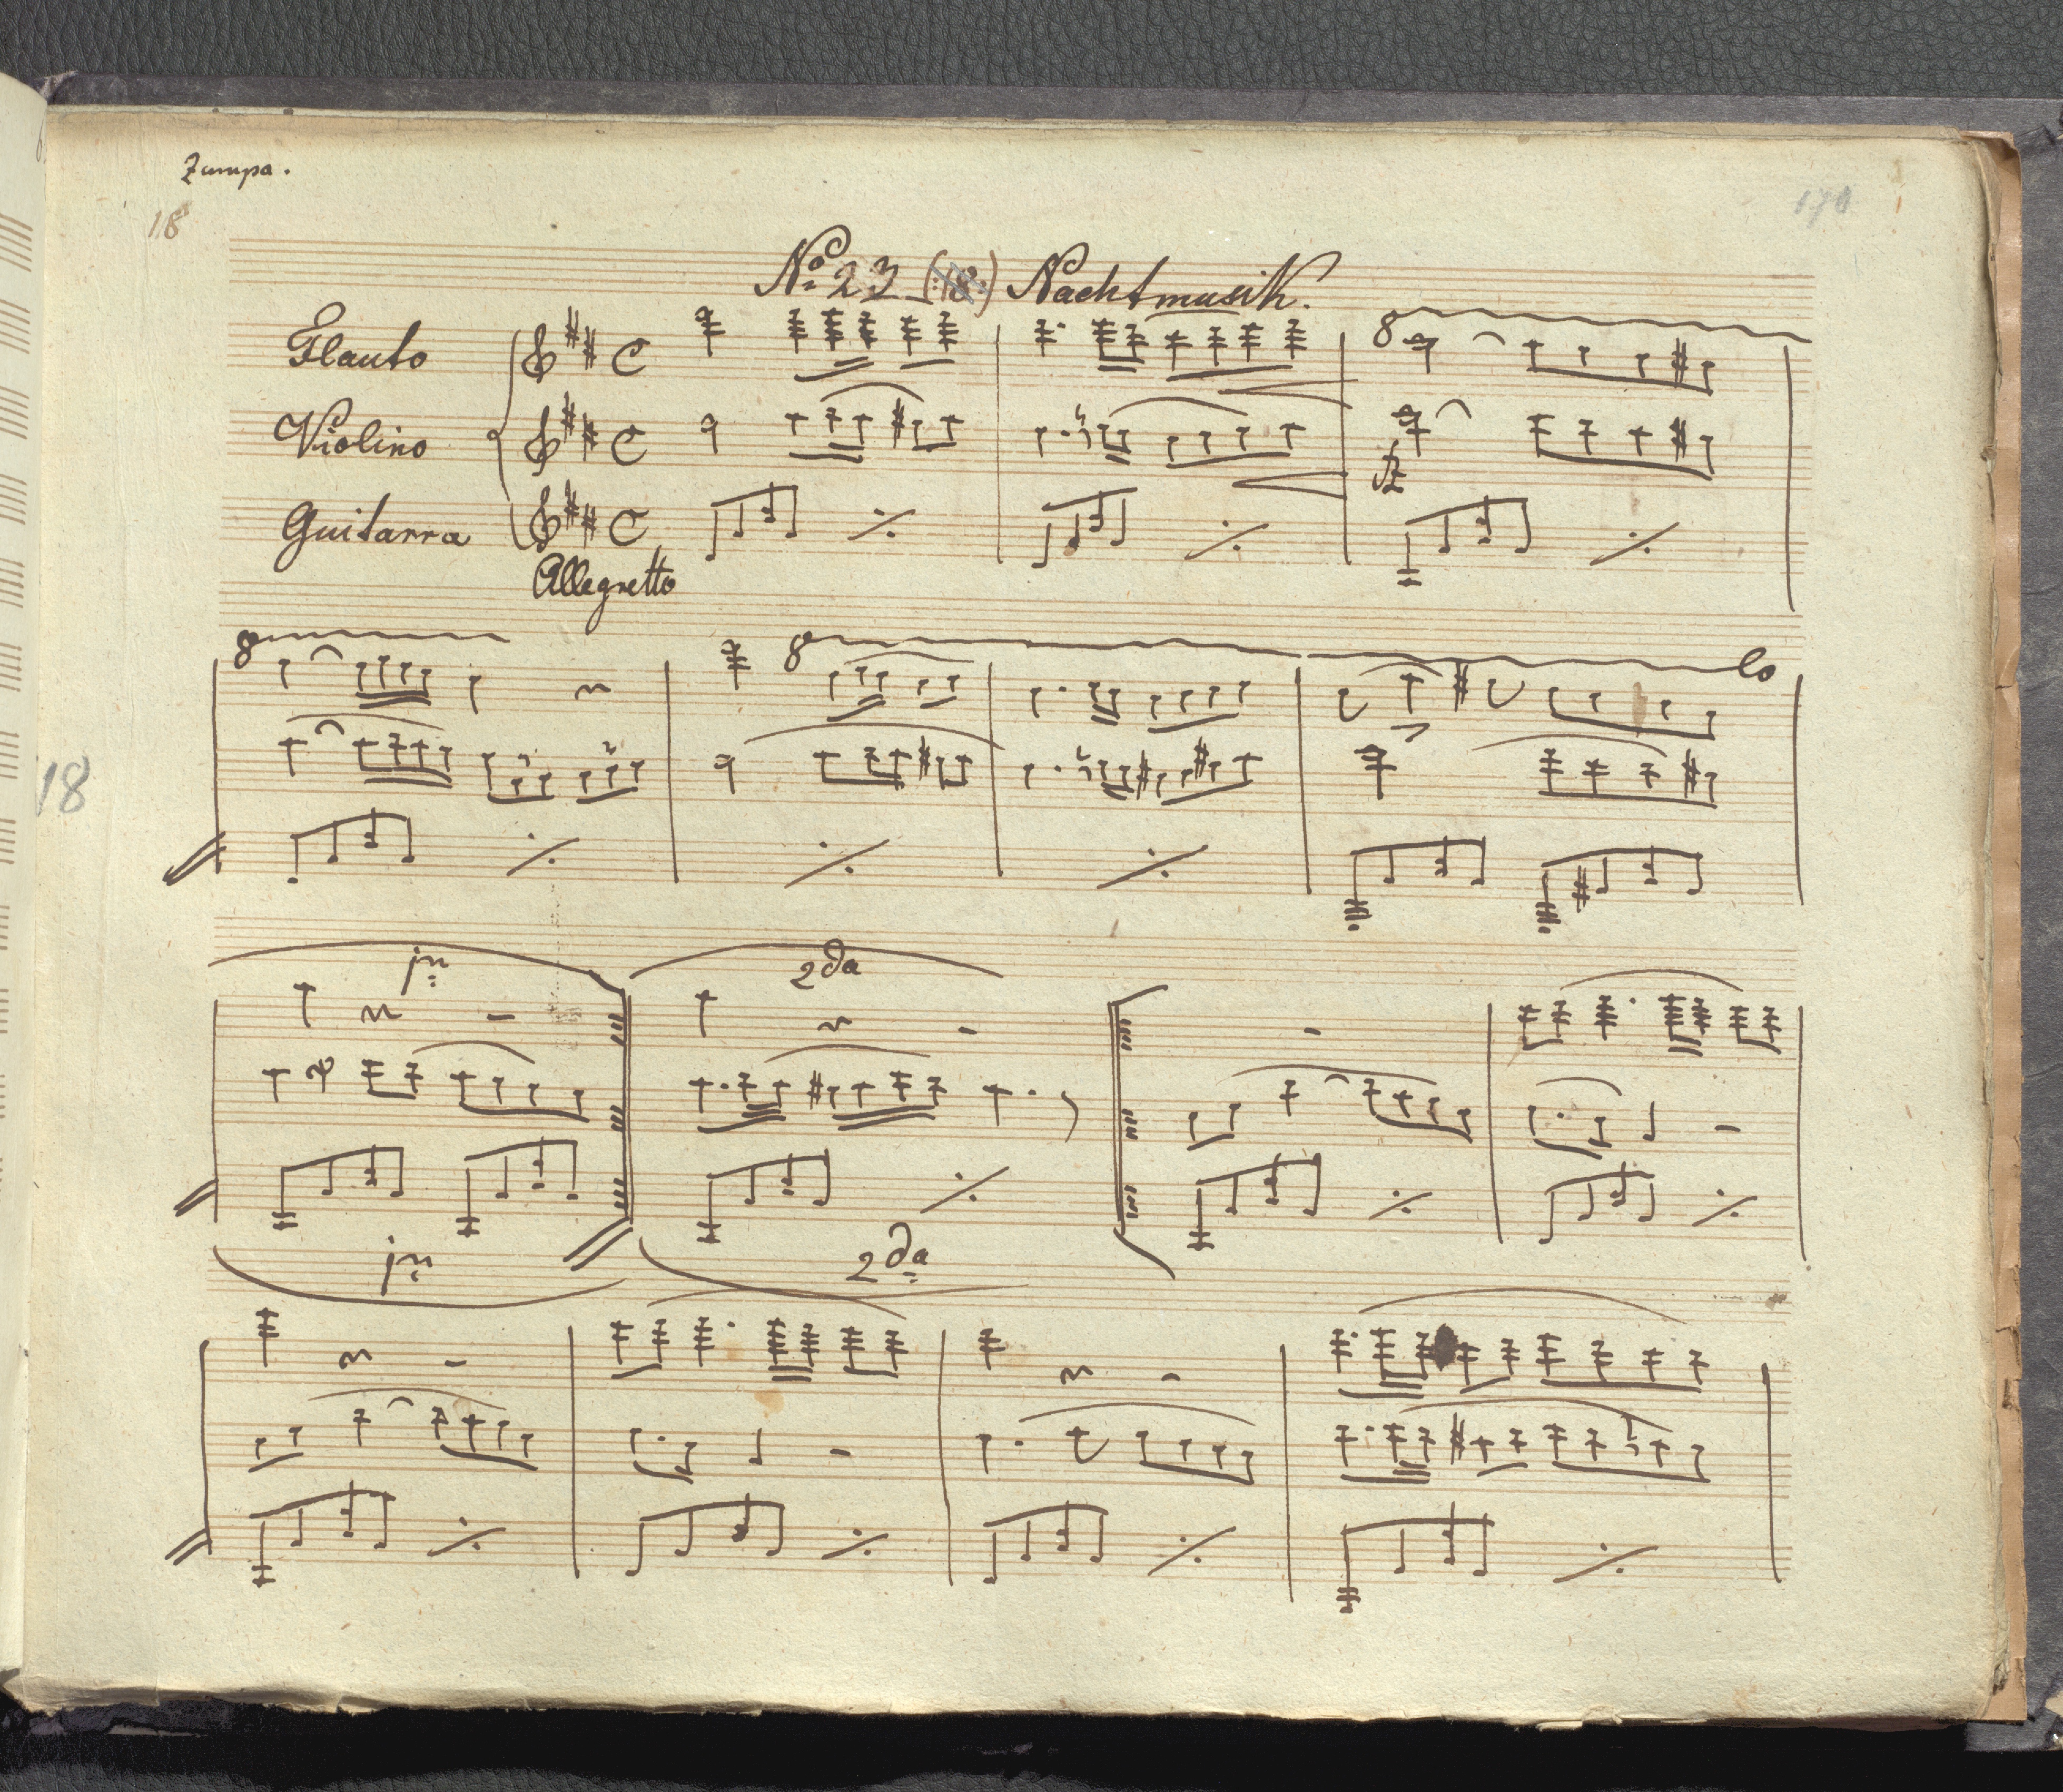 Zampa.
18
170
No. 23 (18.) Nachtmusik.
8
Flauto
Violino
fz
Guitarra
Allegretto
8
8
lo
18
2da
2da